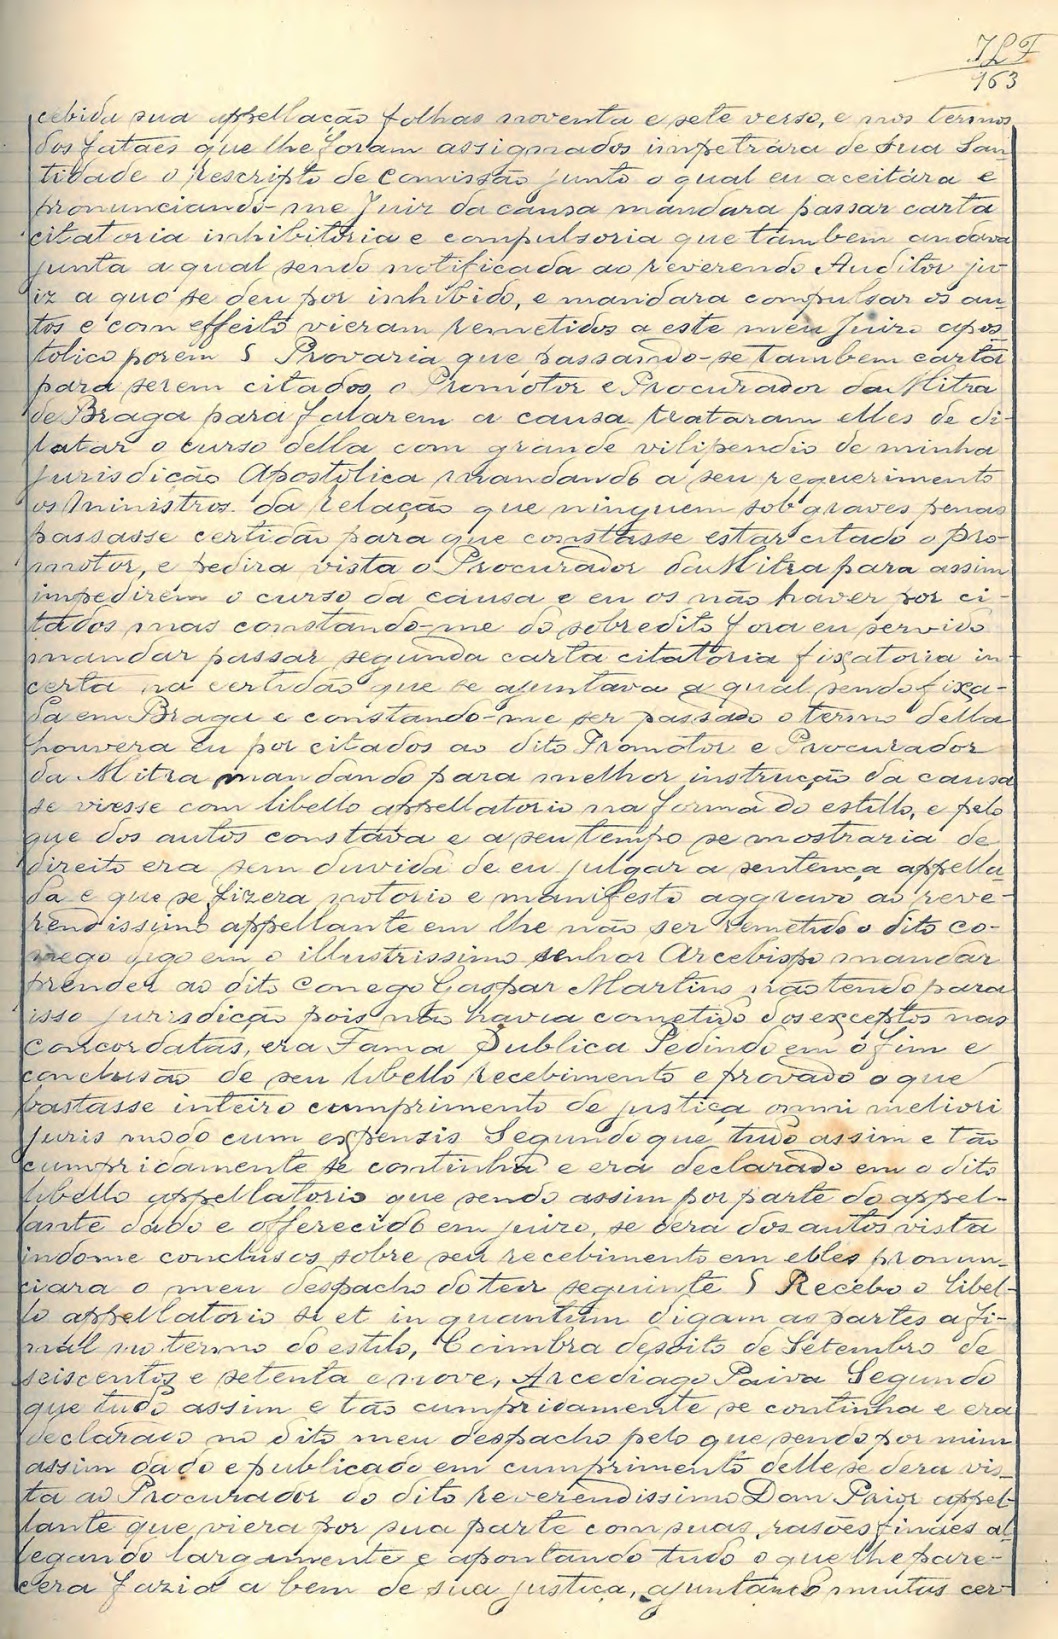 JLF
163
cebida sua appellação folhas noventa e sete verso, e nos termos
dos fataes que lhe foram assignados impetrára de Sua San-
tidade o Rescripto de Comissão junto o qual eu aceitára e
pronunciando-me Juiz da causa mandara passar carta
citatoria inhibitoria e compulsoria que tambem andava
junta a qual sendo notificada ao reverendo Auditor ju-
iz a quo se deu por inhibido, e mandara compulsar os au-
tos e com effeito vieram remetidos a este meu Juizo apos-
tolico porem § Provaria que passando-se tambem carta
para serem citados o Promotor e Procurador da Mitra
de Braga para falarem a causa trataram elles de di-
latar o curso della com grande vilipendio de minha
Jurisdicão Apostolica mandando a seu requerimento
os Ministros da relação que ninguem sob graves penas
passasse certidão para que constasse estar citado o pro-
motor, e pedira vista o Procurador da Mitra para assim
impedirem o curso da causa e eu os não haver por ci-
tados mas constando-me do sobredito fora eu servido
mandar passar segunda carta citatoria fixatoria in-
certa na certidão que se ajuntava a qual sendo fixa-
da em Braga e constando-me ser passado o termo della
houvera eu por citados ao dito Promotor e Procurador
da Mitra mandando para melhor instrução da causa
se viesse com libello appellatorio na forma do estillo, e pelo
que dos autos constava e a seu tempo se mostraria de
direito era sem duvida de eu julgar a sentença appella-
da e que se fizera notorio e manifesto aggravo ao reve-
rendissimo appellante em lhe não ser remetido o dito co-
nego digo em o illustrissimo senhor Arcebispo mandar
prender ao dito Conego Gaspar Martins não tendo para
isso jurisdicão pois não havia cometido dos exceptos nas
Concordatas, era Fama Publica Pedindo em o fim e
conclusão de seu libello recebimento e provado o que
bastasse inteiro cumprimento de justiça omni meliori
Juris modo cum expensis Segundo que tudo assim e tão
cumpridamente se continha e era declarado em o dito
libello appellatorio que sendo assim por parte do appel-
lante dado e offerecido em juizo, se dera dos autos vista
indome conclusos sobre seu recebimento em elles pronun-
ciara o meu despacho do teor seguinte § Recebo o libel-
lo appellatorio si et in quantum digam as partes a fi-
nal no termo do estilo, Coimbra dezoito de Setembro de
seiscentos e setenta e nove, Arcediago Paiva Segundo
que tudo assim e tão cumpridamente se continha e era
declarado no dito meu despacho pelo que sendo por mim
assim dado e publicado em cumprimento delle se dera vis-
ta ao Procurador do dito reverendissimo Dom Prior appel-
lante que viera por sua parte com suas rasões finaes al-
legando largamente e apontando tudo o que lhe pare-
cera fazia a bem de sua justiça, ajuntando muitas cer-